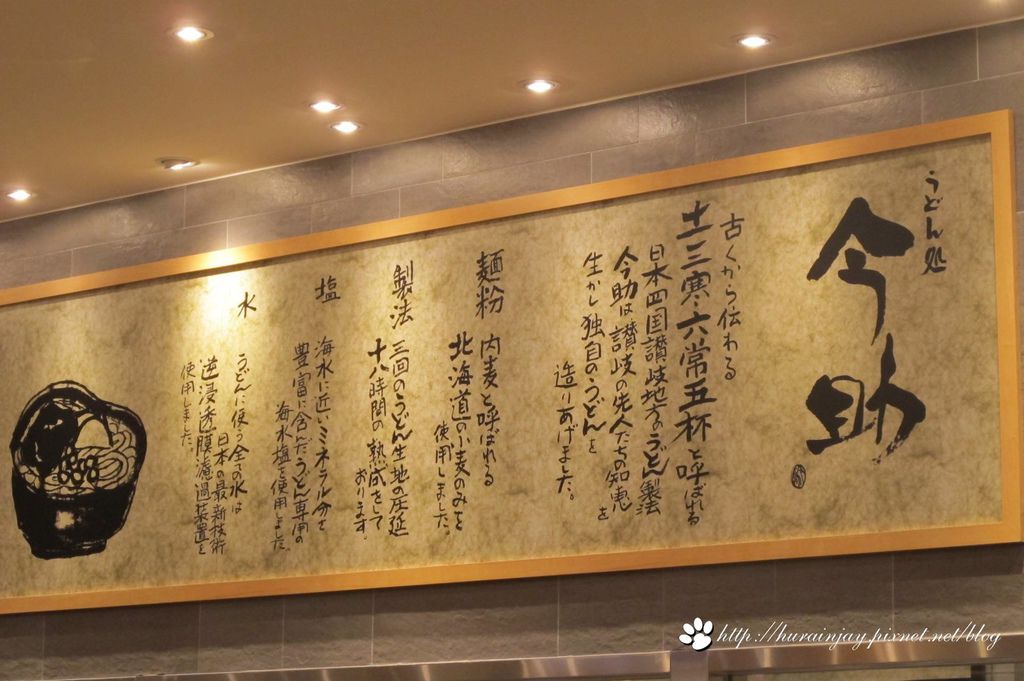 うどん処
今助
古くから伝わる
土三寒六常五杯と呼ばれる
日本四国讃岐地方のうどん製法
今助は讃岐の先人たちの知恵を
生かし独自のうどんを
造りあげました。
麺粉
内麦と呼ばれる
北海道の小麦のみを
使用しました。
製法
三回のうどん生地の圧延
十八時間の熟成をして
おります。
塩
海水に近いミネラル分を
豊富に含んだうどん専用の
海水塩を使用しました。
水
うどんに使う全ての水は
日本の最新技術
逆浸透膜濾過装置を
使用しました。
http://hurainjay.pixnet.net/blog